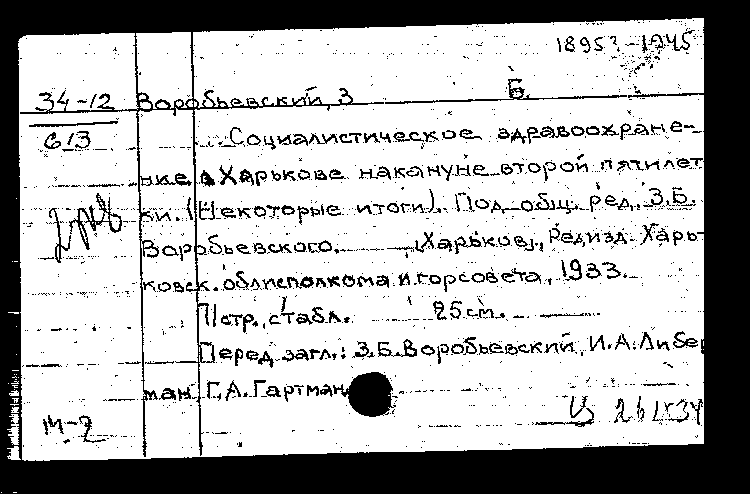 1895?-1945
34-12 Воробьевский, З Б.
613 Социалистическое здравоохране-
ние в Харькове накануне второй пятилет
ки. (Некоторые итоги). Под общ. ред. З.Б.
Воробьевского. [Харьков], Ред изд. Харь-
ковск. облисполкома и горсовета, 1933.
25 см.
Перед загл.: З.Б. Воробьевский, И.А. Либер
ман Г.А. Гартман
М-2